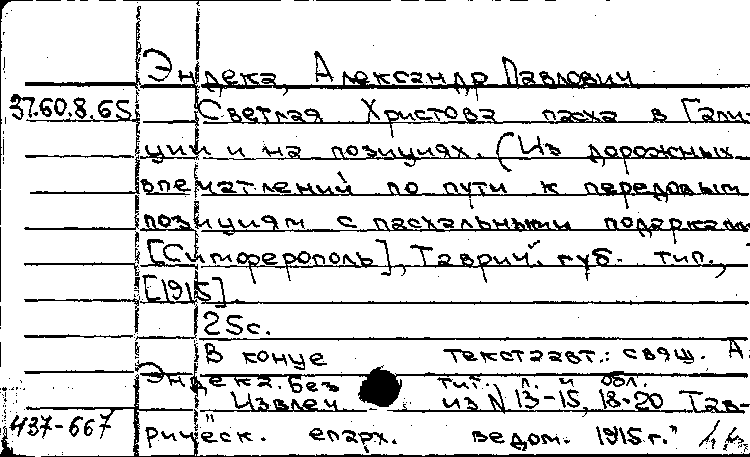 Эндека, Александр Павлович
37.60.8.65 Светлая Христова пасха в Гали-
ции и на позициях. (Из дорожных
впечатлений по пути к передовым
позициям с пасхальными подарками
[Симферополь], Таврич. губ. тип.,
[1915].
25с.
В конце текста авт.: свящ. А.
Эндека. Без тит. л. и обл.
Извлеч. из N 13-15, 18-20 "Тав-
437-667 рическ. епарх. ведом. 1915г."